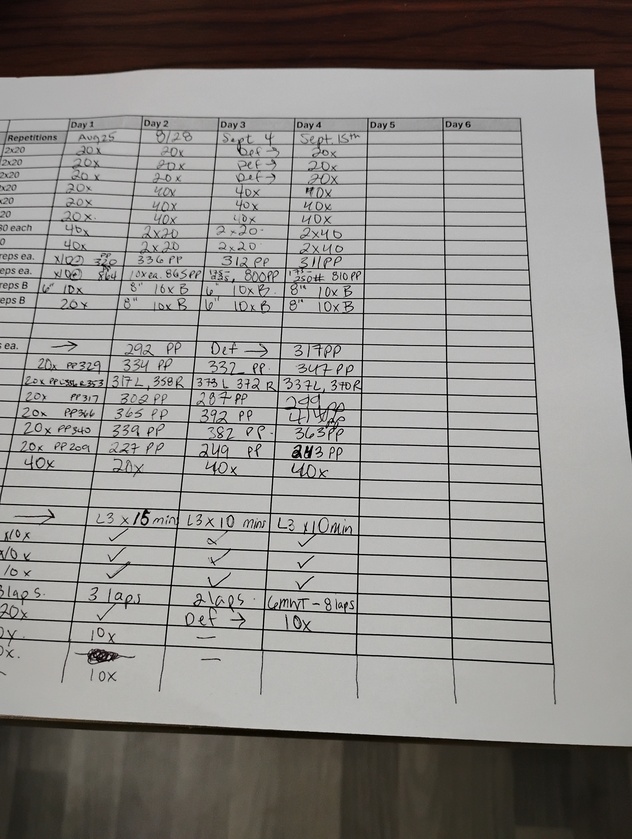 Day 1 Day 2 Day 3 Day 4 Day 5 Day 6
Repetitions Aug 25 8/28 Sept 4 Sept. 15th
2x20 20x 20x Def → 20x
2x20 20x 20x Def → 20x
2x20 20x 20x Def → 20x
x20 20x 40x 40x 40x
x20 20x 40x 40x 40x
20 20x. 40x 40x 40x
30 each 40x 2x20 2x20 2x40
0 40x 2x20 2x20 2x40
reps ea. x10 PP 320 336 PP 312 PP 311PP
reps ea. x10 PP 864 10xea. 865PP 800PP 250# 810PP
reps B 6" 10x 8" 10xB 6" 10xB 8" 10xB
reps B 20x 8" 10xB 6" 10xB 8" 10xB
s ea. → 292 PP Def → 317PP
20x PP329 334 PP 332 PP. 347PP
20x 353 317L, 358R 373L 372R 337L, 370R
20x PP317 302PP 287PP 299
20x PP366 365 PP 392 PP PP
20x PP340 339 PP 382 PP. 363PP
20x PP209 227 PP 249 PP 243PP
40x 20x 40x 40x
→ L3 x 15 min L3 x 10 mins L3 x 10min
x10x ✓ ✓ ✓
x10x ✓ ✓ ✓
10x ✓ ✓ ✓
3laps. 3 laps 2 laps. 6MWT - 8laps
20x ✓ Def → 10x
0x. 10x —
0x. —
10x